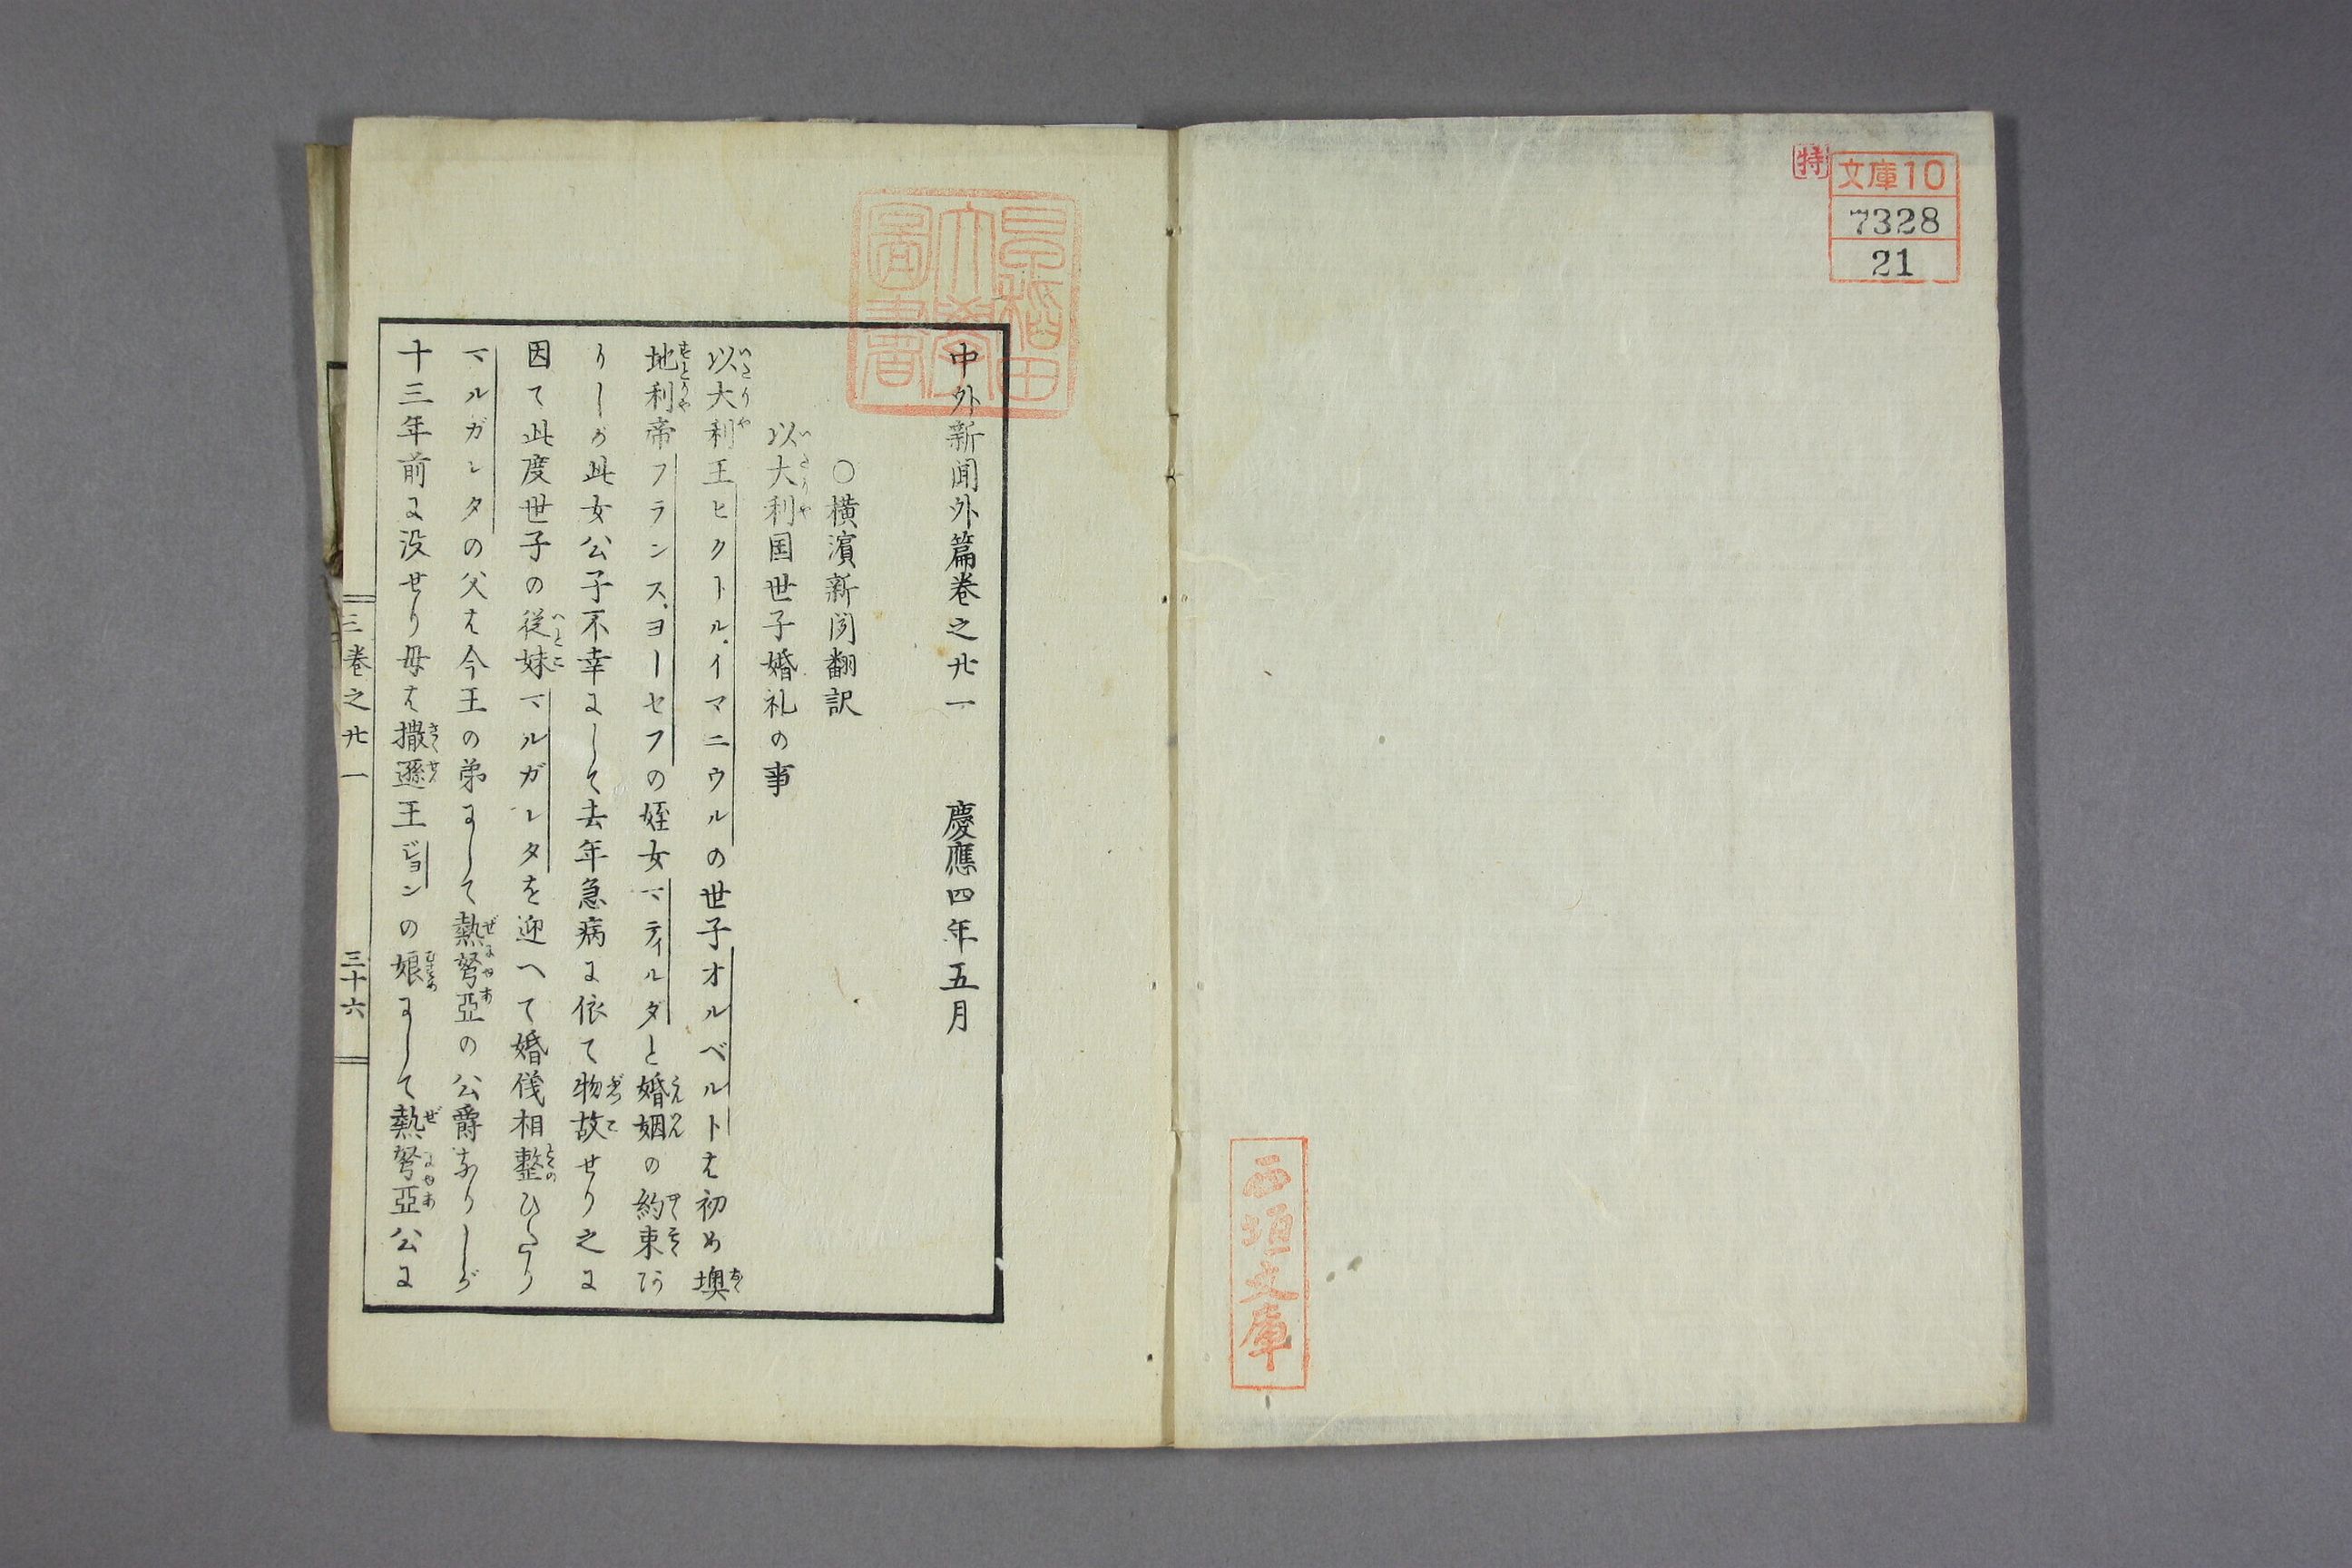 特
文庫10
7328
21
西垣文庫
早稲田
大學
圖書
中外新聞外篇巻之廿一　慶應四年五月
○横濱新聞翻訳
以大利国世子婚礼の事
以大利王ヒクトル、イマニウルの世子オルベルトは初め墺
地利帝フランス、ヨーセフの姪女マティルダと婚姻の約束あ
りしが此女公子不幸にして去年急病に依て物故せり之に
因て此度世子の従妹マルガレタを迎へて婚儀相整ひたり
マルガレタの父は今王の弟にして熱弩亞の公爵なりしが
十三年前に没せり母は撒遜王ジョンの娘にして熱弩亞公に
三巻之廿一
三十六